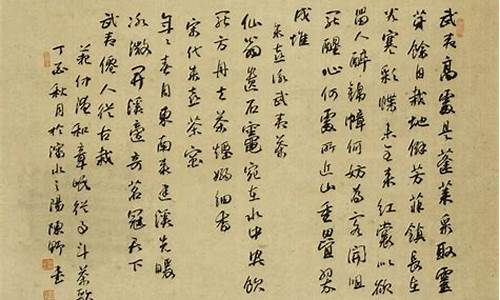 武夷高處是蓬萊采取靈
芽餘自栽地僻芳菲鎮長在
谷寒彩蝶未全來紅裳似欲
留人醉錦幛何妨為客開咀
罷醒心何處所近山重疊翠
成堆
朱熹咏武夷茶
仙翁遺石竈宛在水中央飲
罷方舟去茶煙裊細香
宋代朱熹茶竈
年々春自東南來建溪先暖
冰微開溪邊奇茗冠天下
武夷僊人從古栽
范仲淹和章岷從事斗茶歌
丁酉秋月於水之陽陳書